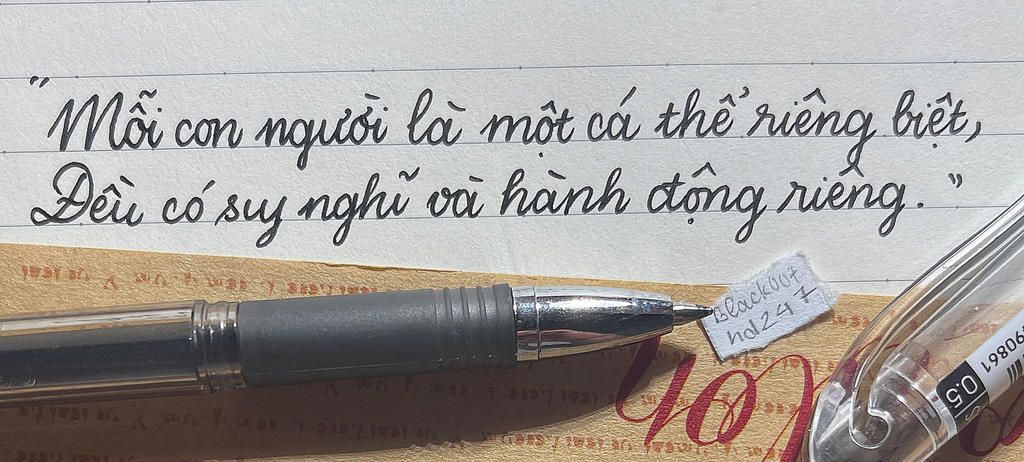 "Mỗi con người là một cá thể riêng biệt,
Đều có suy nghĩ và hành động riêng."
Blackout
hd247
90861
0.5